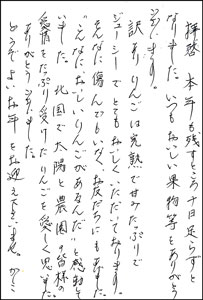 拝啓 本年も残すところ十日足らずと
なりました。いつもおいしい果物等をありがとう
ございます。
訳ありりんごは完熟で甘みたっぷりで
ジューシーでとてもおいしくいただいております。
そんなに傷んでもいなくお友だちにもあげました。
"えっ、こんなにおいしいりんごがあるなんだ"と感動して
いました。北国で太陽と農園の皆様の
愛情をたっぷり受けたりんごを愛しく思いました。
ありがとうございました。
どうぞよいお年をお迎え下さいませ。かしこ